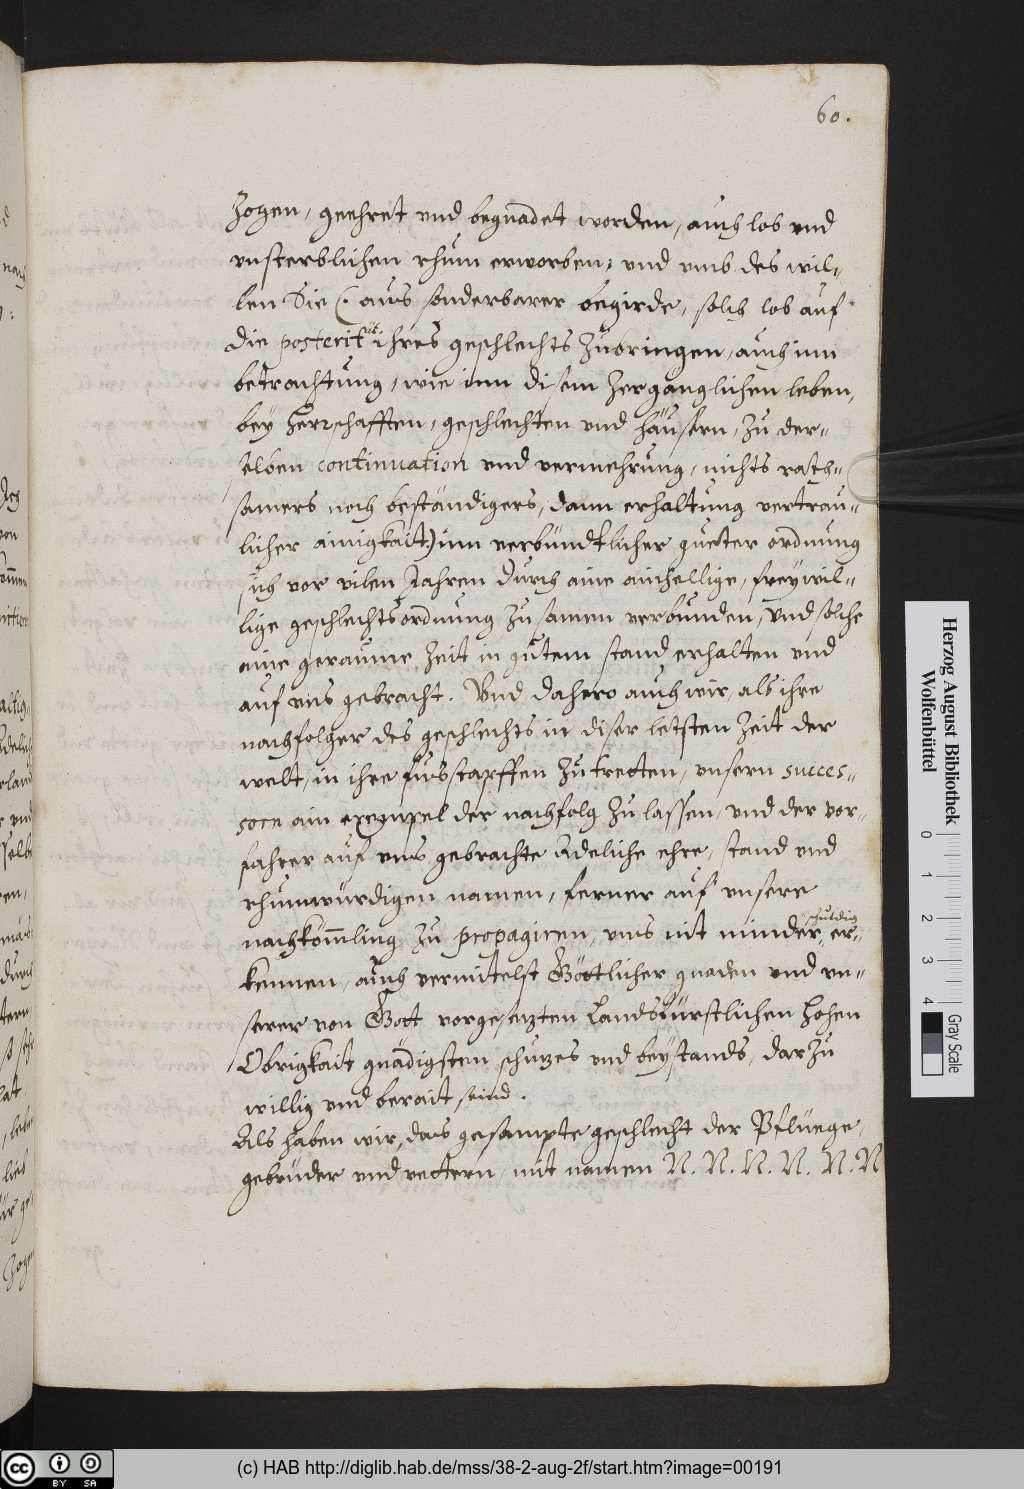 60.
zogen, geehret vnd begnadet worden, auch lob vnd
vnsterblichen rhum erworben, vnd vmb des wil-
len Sie (: aus sonderbarer begirde, solch lob auf
die posteritet ihres geschlechts Zubringen, auch inn
betrachtung, wie inn disem Zergänglichen leben,
bey Herrschafften, geschlechten vnd häusern, Zu der-
selben continuation vnd vermehrung, nichts rath-
samers noch beständigers, dann erhaltung vertrau-
licher ainigkait:) inn verbündtlicher gueter ordnung
sich vor vilen Jahren durch aine ainhellige, freywil-
lige geschlechtsordnung Zusamen verbunden, Vnd solche
eine geraume Zeit in gutem stand erhalten vnd
auf vns gebracht. Vnd dahero auch wir, als ihre
nachfolger des geschlechts in diser letsten Zeit der
welt, in ihre fuosstapffen Zutretten, vnsern succes-
sorn ain exempel der nachfolg Zu lassen, vnd der vor-
fahrer auf vns gebrachte Adeliche ehre, stand vnd
rhumwürdigen namen, ferner auf vnsere
nachkömling Zu propagiren, vns nit minder schuldig er-
kennen, auch vermitelst Göttlicher gnaden vnd vn-
serer von Gott vorgesetzten Landsfürstlichen Hohen
Obrigkait gnädigsten schutzes vnd beystands, darzu
willig vnd berait seind.
Als haben wir, das gesampte geschlecht der Pflüege,
gebrüder vnd vettern, mit namen N. N. N. N. N. N
Herzog August Bibliothek
Wolfenbüttel
0 1 2 3 4
Gray Scale
BY SA
(c) HAB http://diglib.hab.de/mss/38-2-aug-2f/start.htm?image=00191